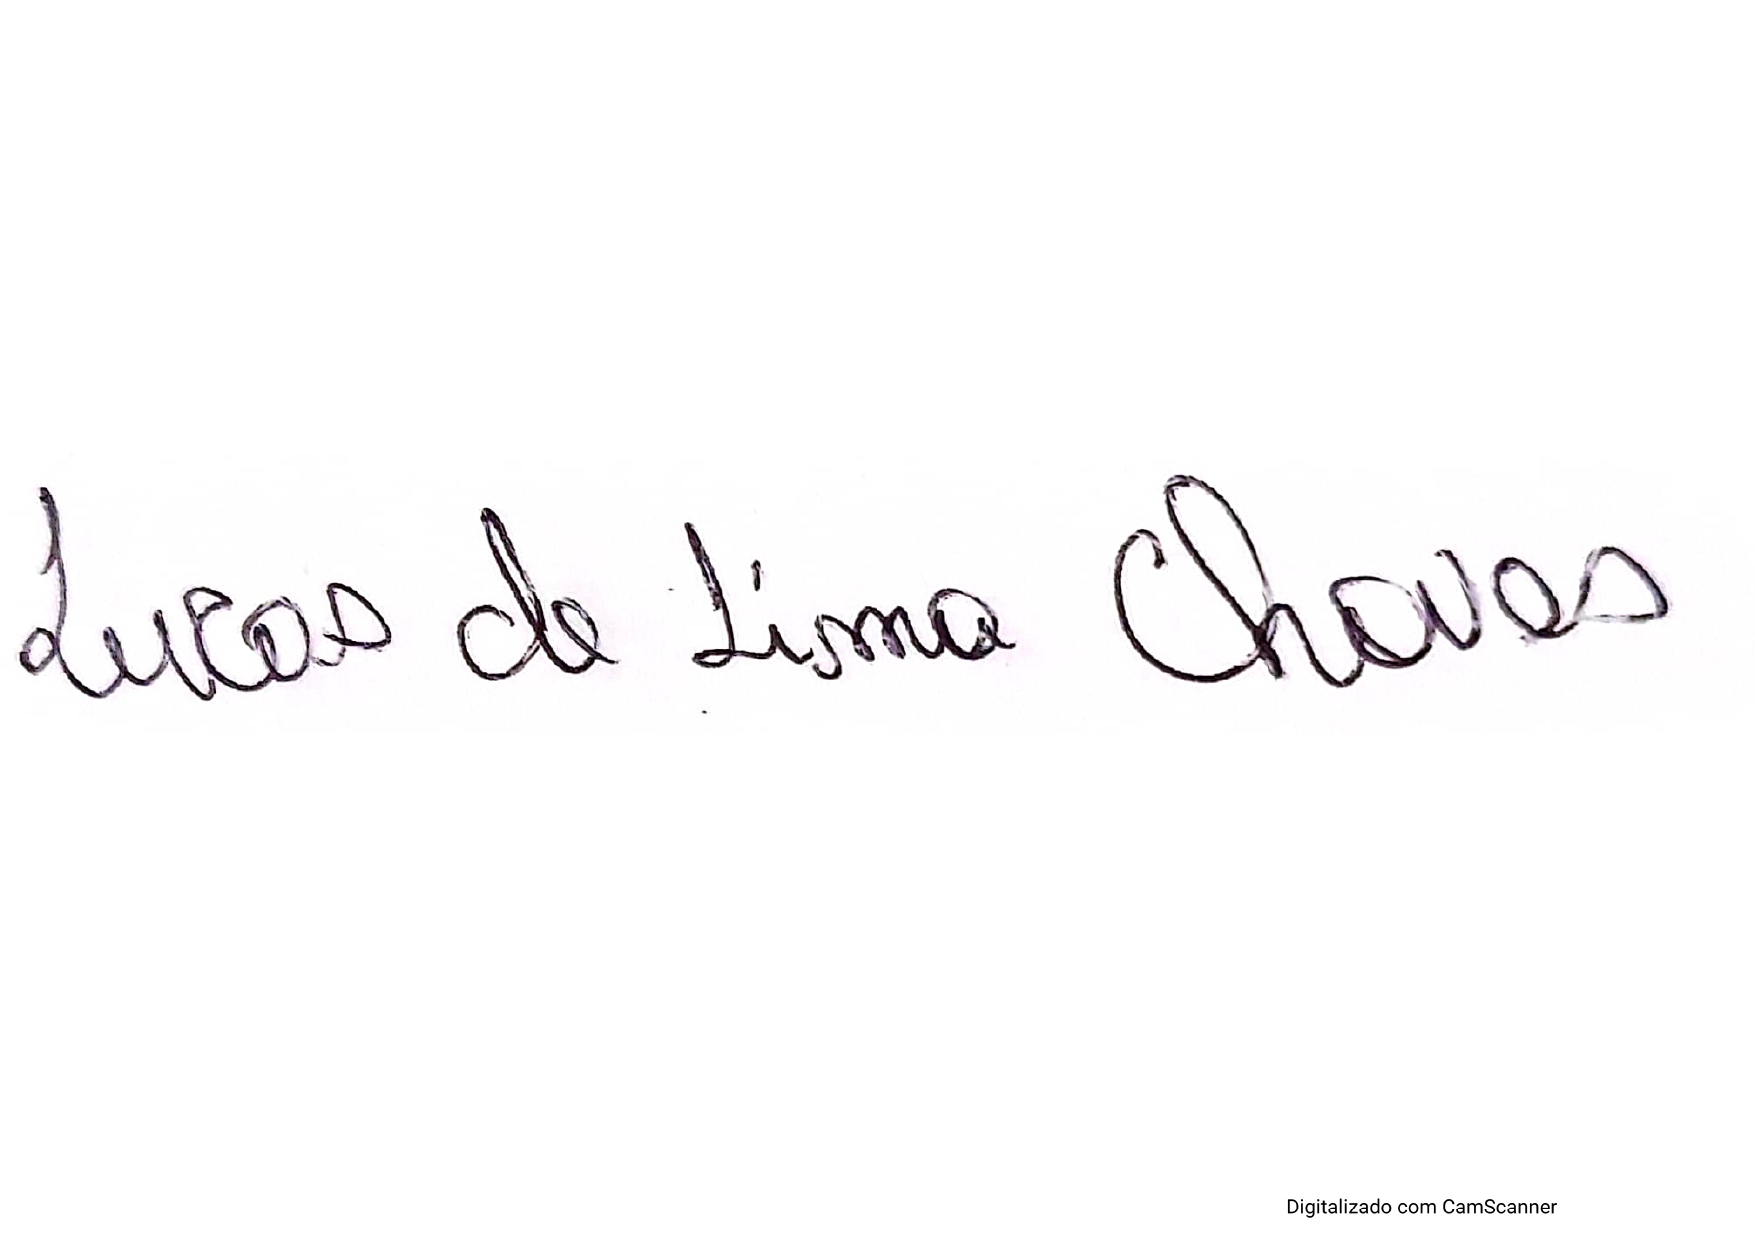 Lucas de Lima Chaves
Digitalizado com CamScanner